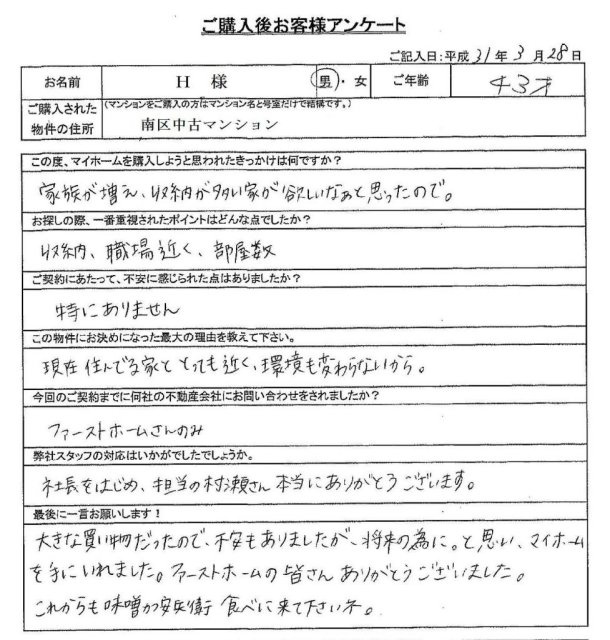 ご購入後お客様アンケート
ご記入日:平成 31 年 3 月 28 日
お名前 H 様 男・女 ご年齢 43才
ご購入された (マンションをご購入の方はマンション名と号室だけで結構です。)
物件の住所 南区中古マンション
この度、マイホームを購入しようと思われたきっかけは何ですか?
家族が増え、収納が多い家が欲しいなぁと思ったので。
お探しの際、一番重視されたポイントはどんな点でしたか?
収納、職場近く、部屋数
ご契約にあたって、不安に感じられた点はありましたか?
特にありません
この物件にお決めになった最大の理由を教えて下さい。
現在住んでる家ととっても近く、環境も変わらないから。
今回のご契約までに何社の不動産会社にお問い合わせをされましたか?
ファーストホームさんのみ
弊社スタッフの対応はいかがでしたでしょうか。
社長をはじめ、担当の村瀬さん本当にありがとうございます。
最後に一言お願いします!
大きな買い物だったので、不安もありましたが、将来の為に。と思い、マイホーム
を手にいれました。ファーストホームの皆さんありがとうございました。
これからも味噌カツ安兵衛食べに来て下さいネ。